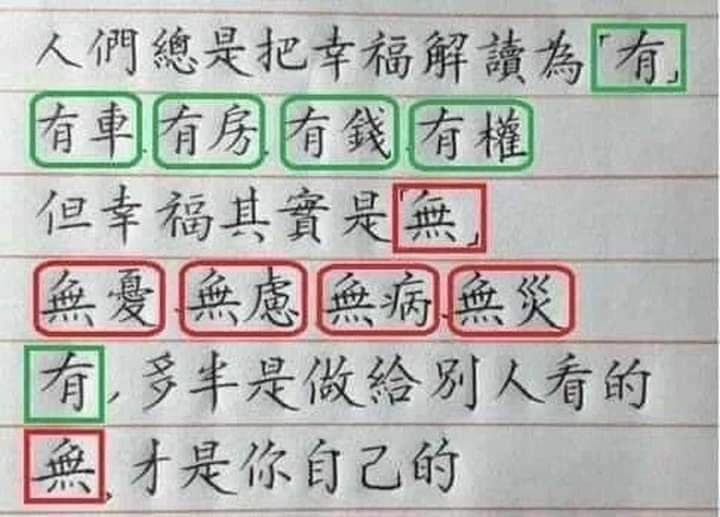 人們總是把幸福解讀為「有」
有車、有房、有錢、有權
但幸福其實是「無」
無憂、無慮、無病、無災
有，多半是做給別人看的
無、才是你自己的